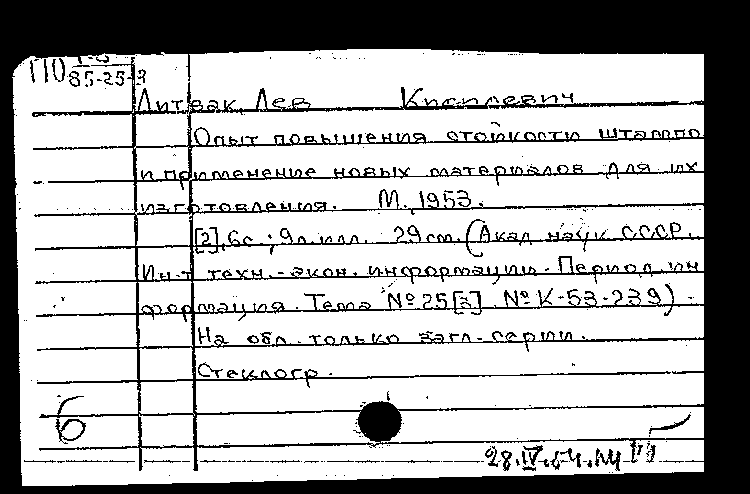 П0 85-25-9
Литвак, Лев Кисилевич
Опыт повышения стойкости штампо
и применение новых материалов для их
изготовления. М., 1953.
[2], 6с.; 9л. илл. 29см. (Акад. наук СССР.
Ин-т техн.-экон. информации. Период. ин
формация. Тема № 25[3] № К-53-239) -
На обл. только загл. серии.
Стеклогр.
6
28.IV.64.